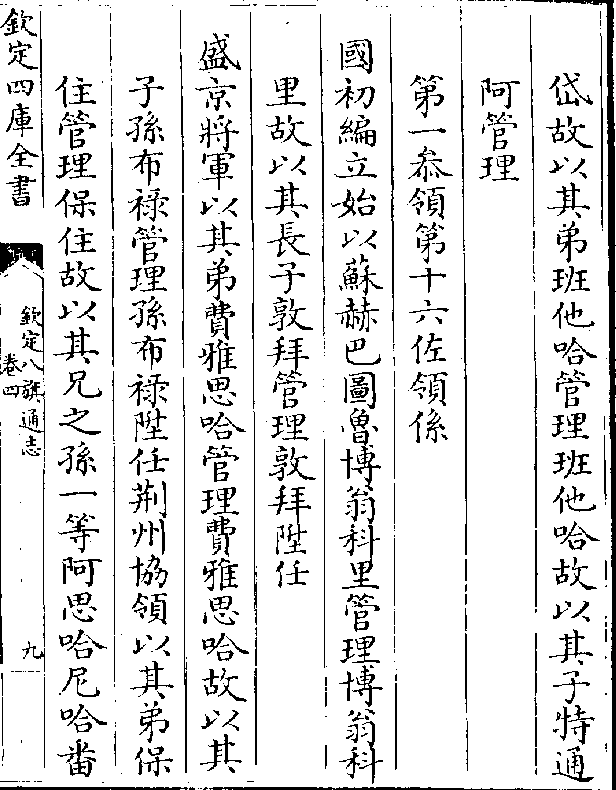 岱故以其弟班他哈管理班他哈故以其子特通
阿管理
第一叅領第十六佐領係
國初編立始以蘇赫巴圖魯博翁科里管理博翁科
里故以其長子敦拜管理敦拜陞任
盛京將軍以其弟費雅思哈管理費雅思哈故以其
子孫布祿管理孫布祿陞任荆州協領以其弟保
住管理保住故以其兄之孫一等阿思哈尼哈番
欽定四庫全書
欽定八旗通志
卷四
九